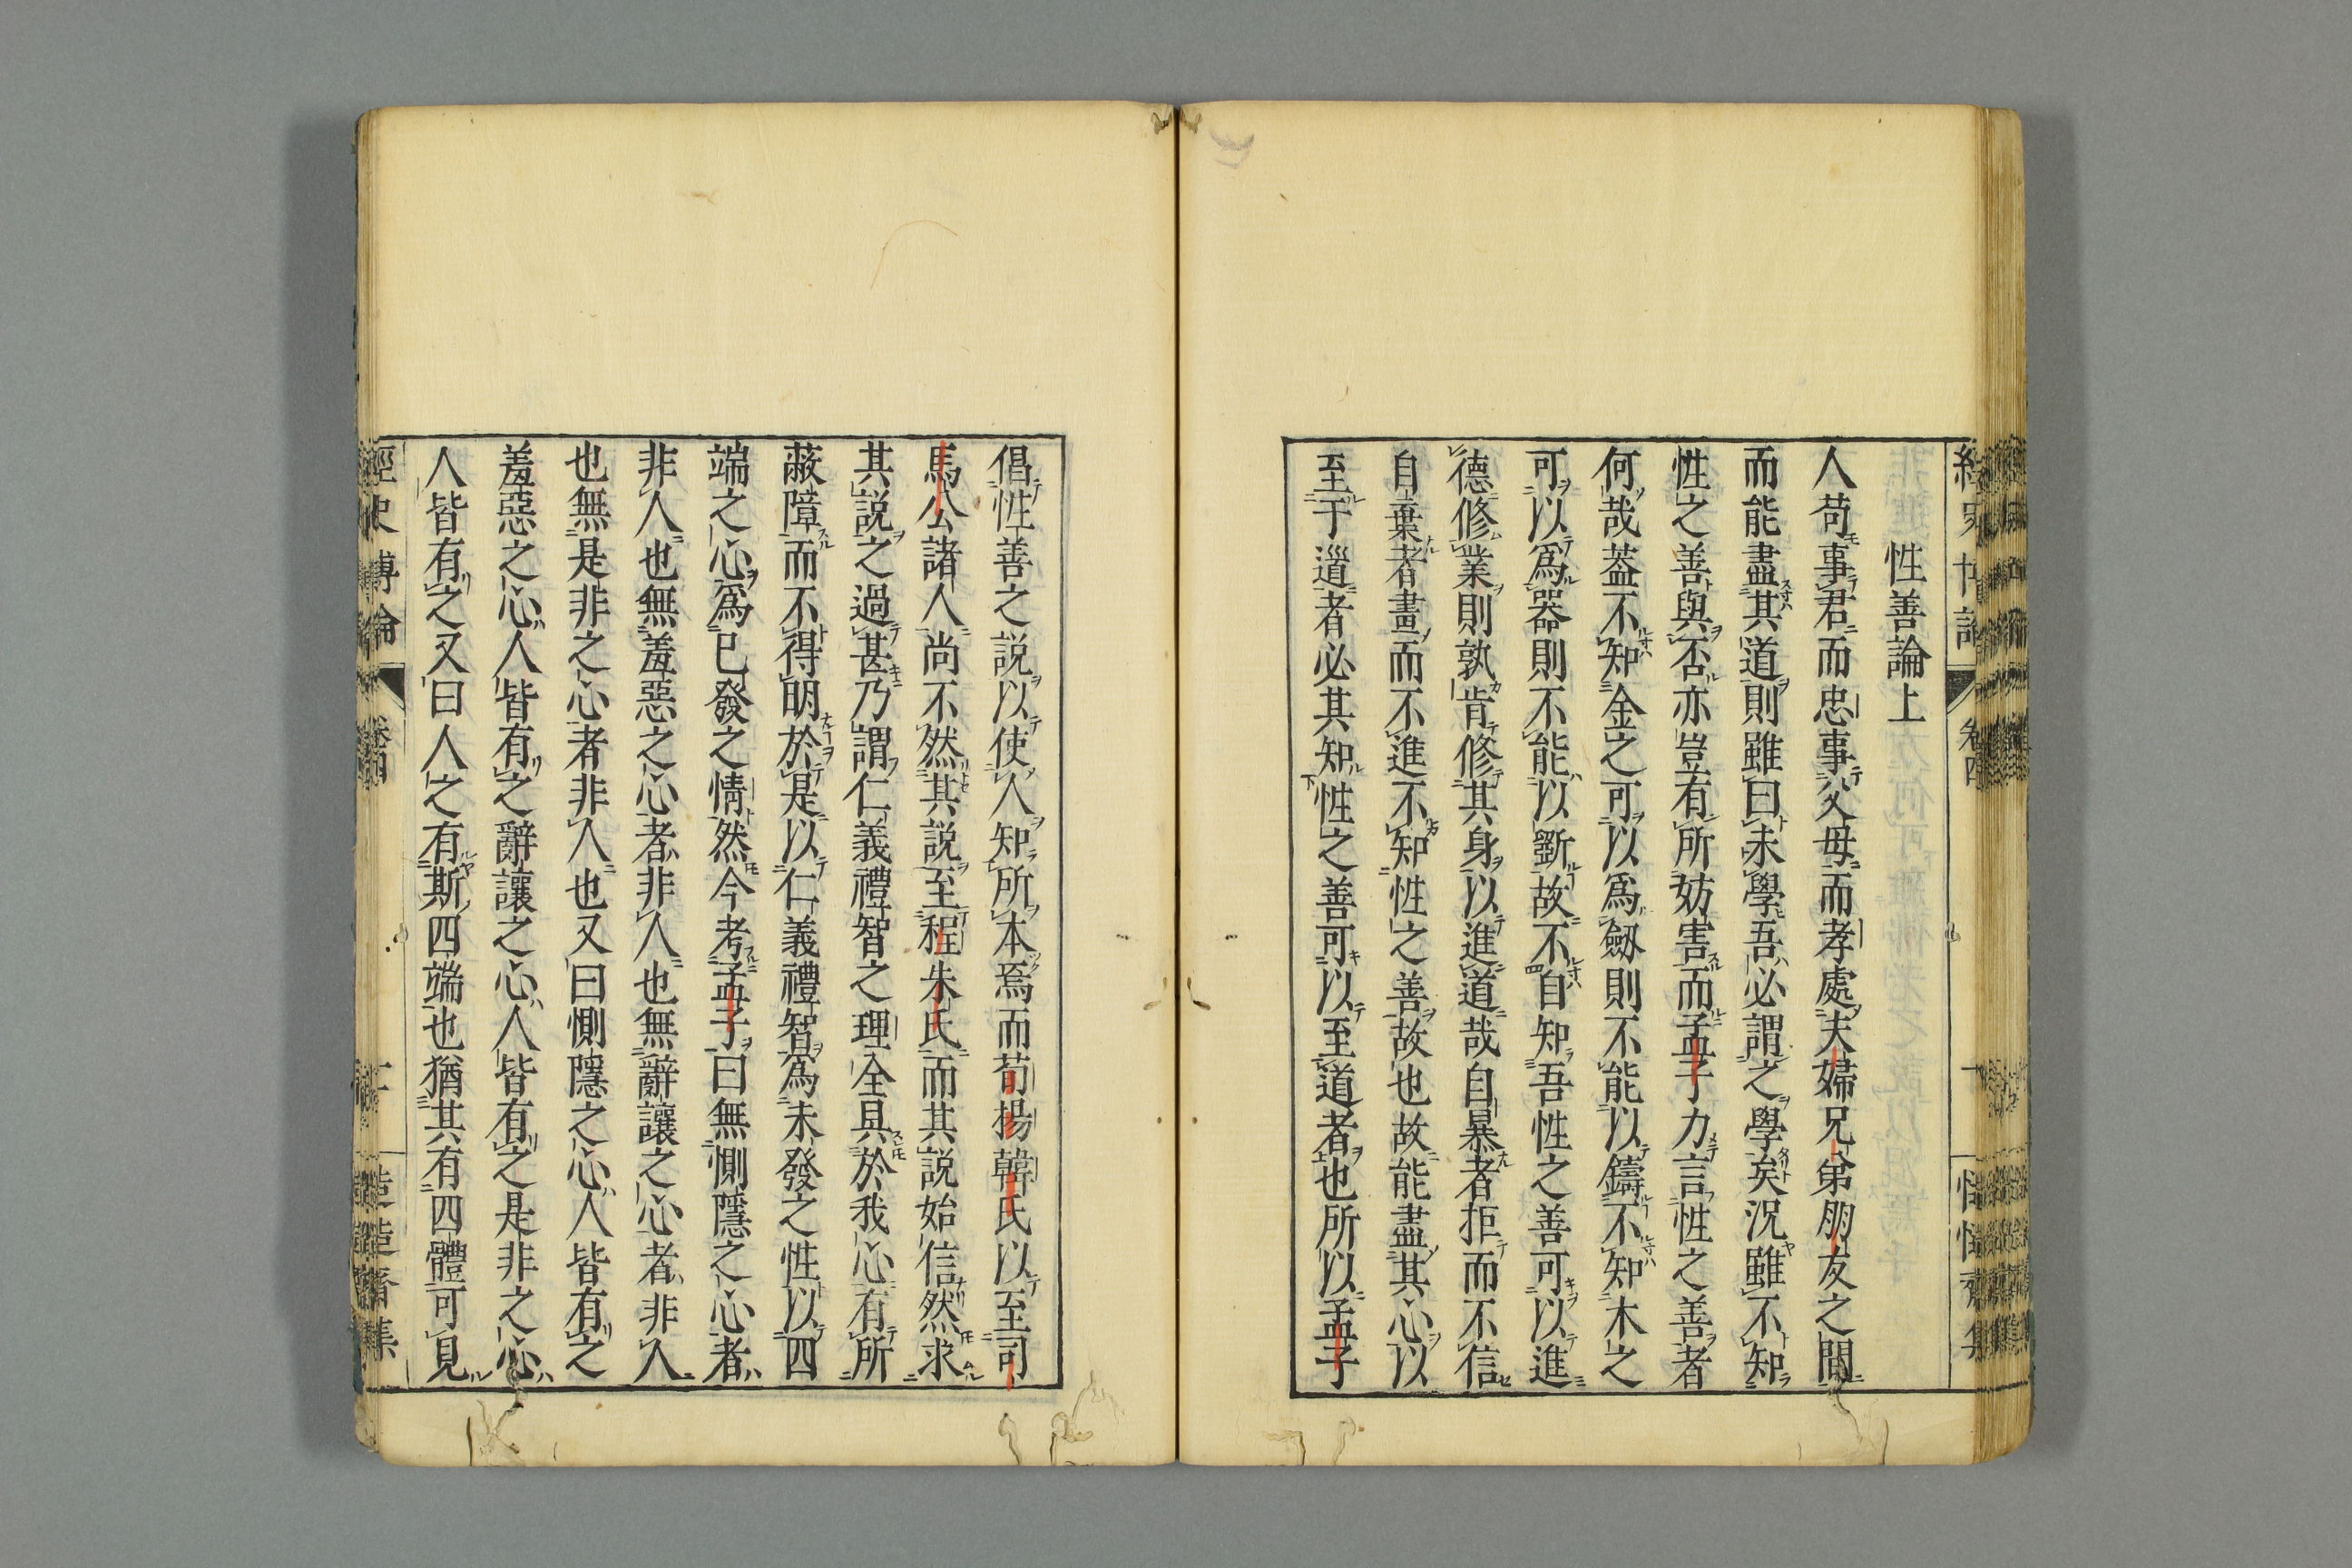 性善論上
人苟事君而忠事父母而孝處夫婦兄弟朋友之間
而能盡其道則雖曰未學吾必謂之學矣況雖不知
性之善與否亦豈有所妨害而孟子力言性之善者
何哉蓋不知金之可以爲劔則不能以鑄不知木之
可以爲器則不能以斲故不自知吾性之善可以進
德修業則孰肯修其身以進道哉自暴者拒而不信
自棄者畫而不進不知性之善故也故能盡其心以
至于道者必其知性之善可以至道者也所以孟子
倡性善之説以使人知所本焉而荀揚韓氏以至司
馬公諸人尚不然其説至程朱氏而其説始信然求
其説之過甚乃謂仁義禮智之理全具於我心有所
蔽障而不得明於是以仁義禮智爲未發之性以四
端之心爲已發之情然今考孟子曰無惻隱之心者
非人也無羞惡之心者非人也無辭讓之心者非人
也無是非之心者非人也又曰惻隱之心人皆有之
羞惡之心人皆有之辭讓之心人皆有之是非之心
人皆有之又曰人之有斯四端也猶其有四體可見
經史博論
卷四